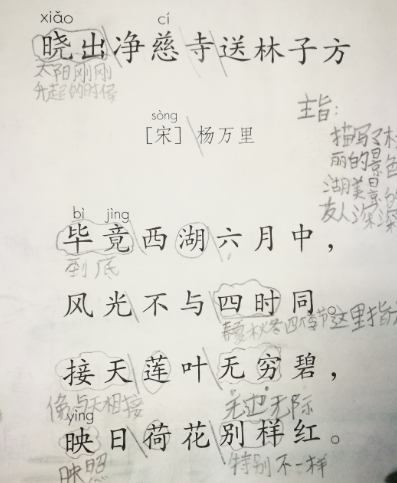 xiǎo cí
晓出净慈寺送林子方
太阳刚刚
升起的时候
sòng
[宋] 杨万里
主旨：
描写了
丽的景色
湖美景
友人深深
bì jìng
毕竟西湖六月中，
到底
风光不与四时同。
春夏秋冬四季节 这里指
接天莲叶无穷碧，
像与天相接 无边无际
yìng
映日荷花别样红。
映照 特别不一样